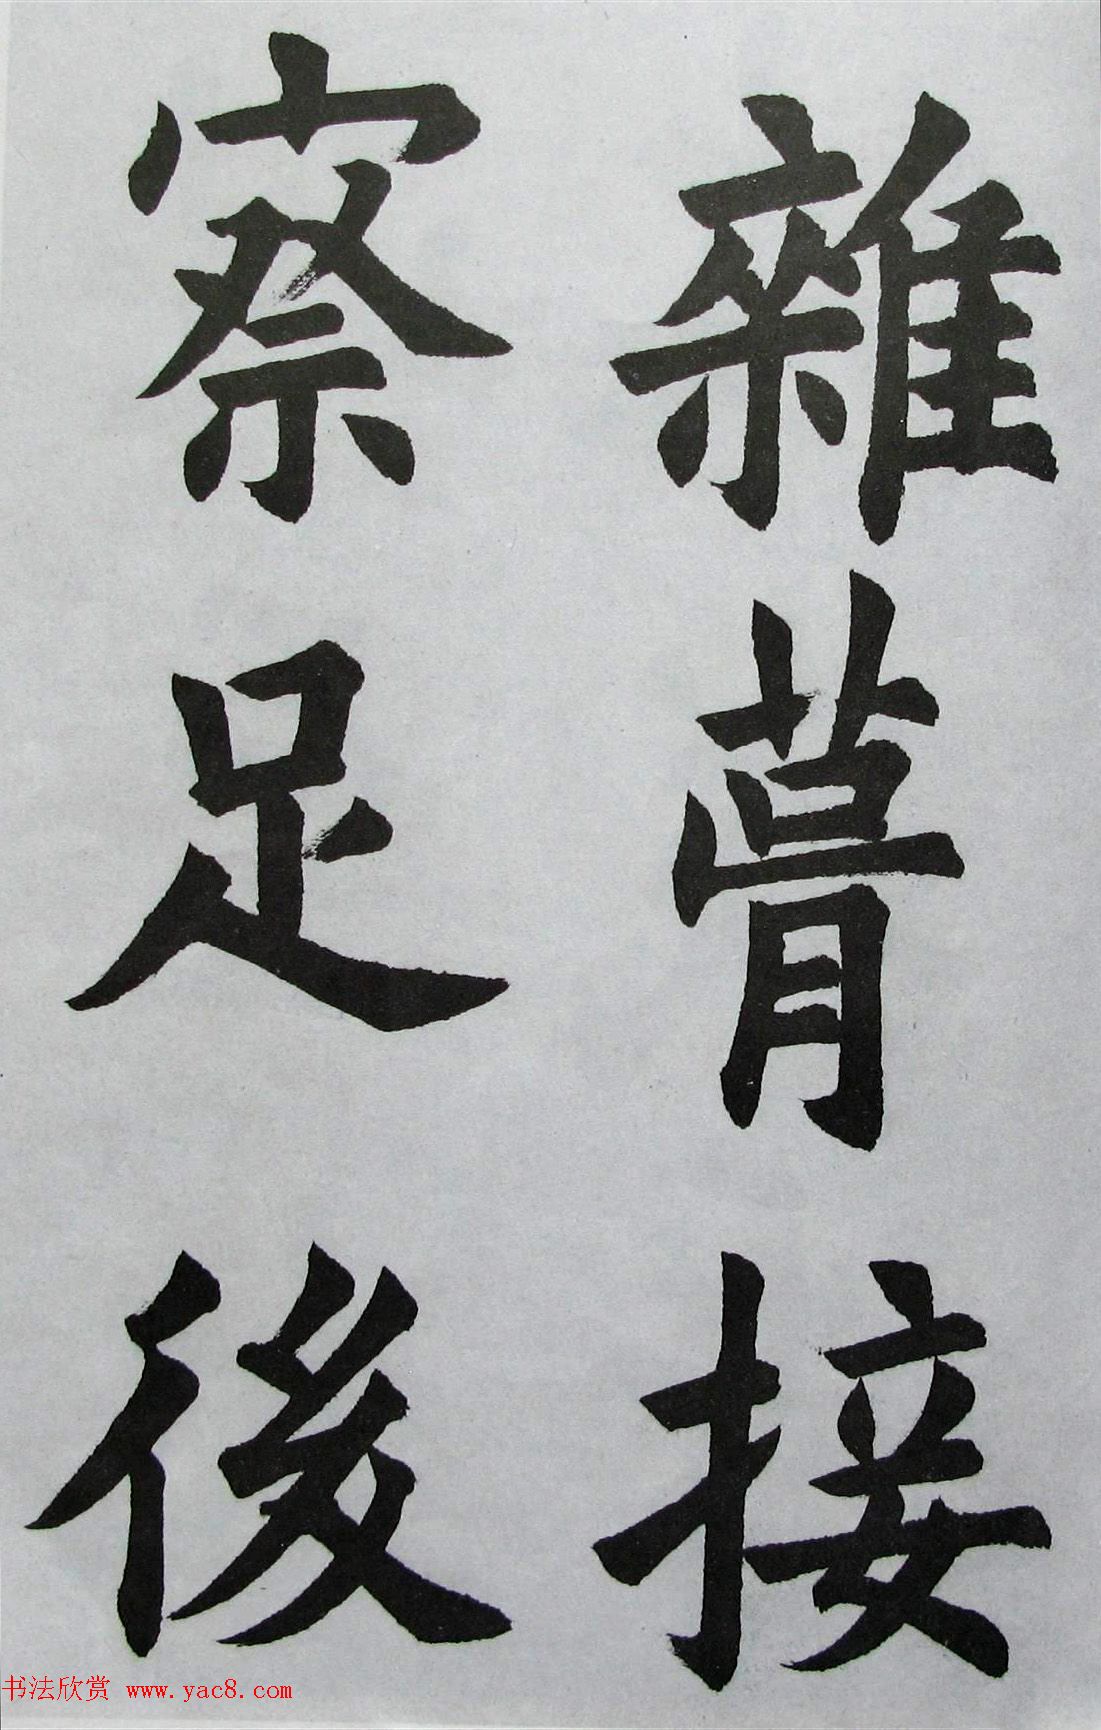 雜接
察足後
书法欣赏 www.yac8.com